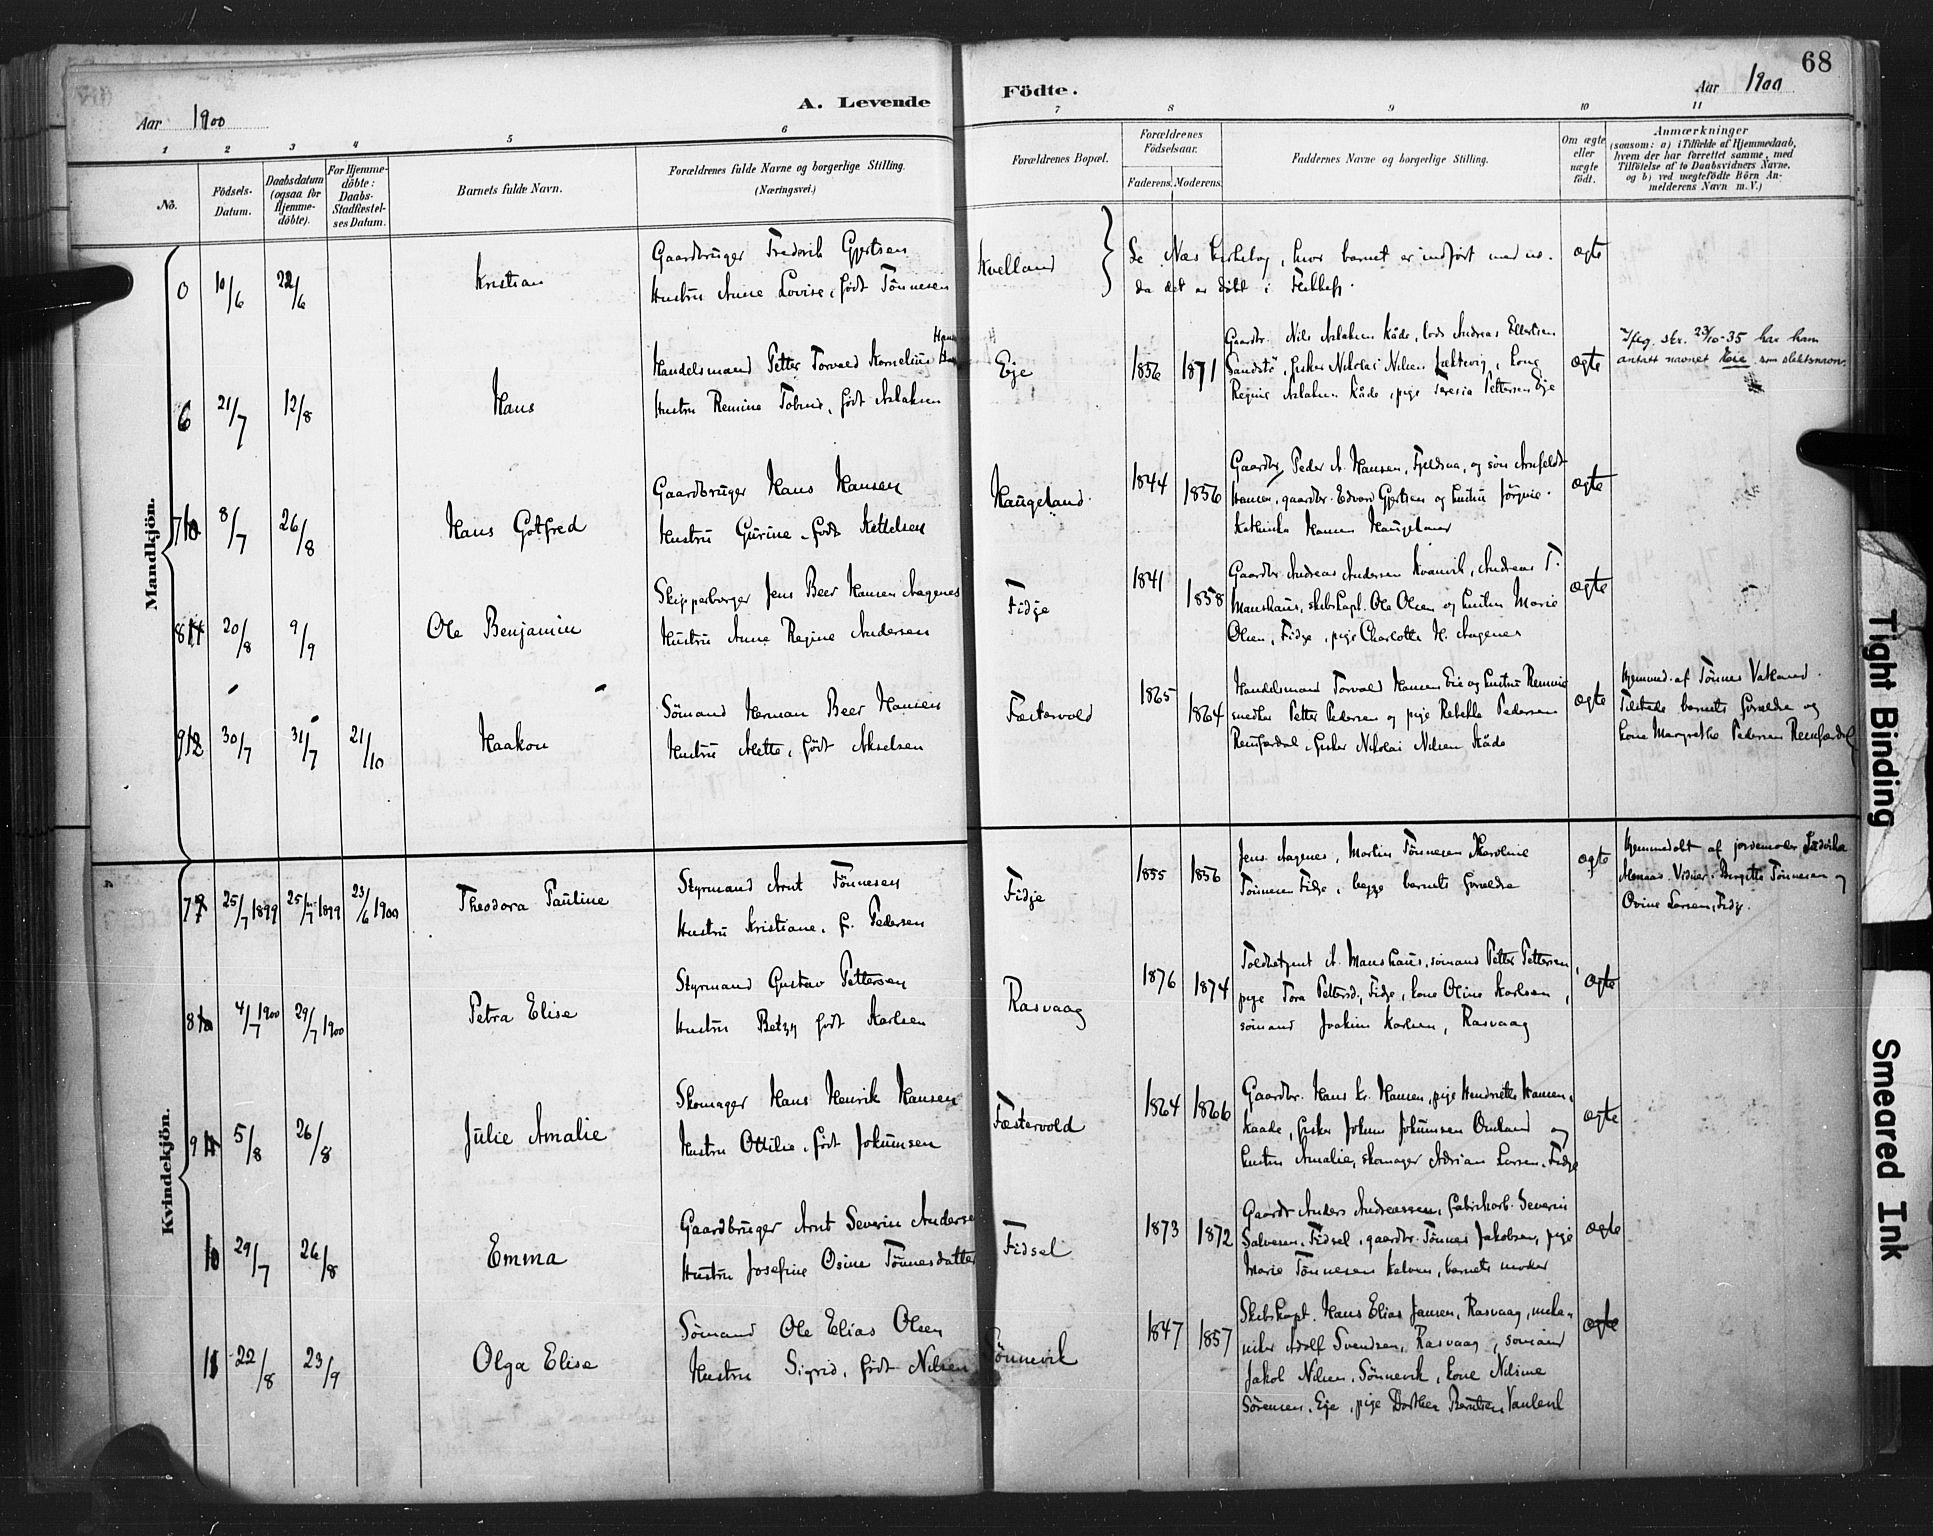 68
A. Levende Födte.
Aar 1900
Aar 1900
1 2 3 4 5 6 7 8 9 10 11
No.
Födsels-Datum.
Daabsdatum (ogsaa for Hjemme-döbte).
For Hjemme-döbte: Daabs-Stadfæstel-ses Datum.
Barnets fulde Navn.
Forældrenes fulde Navne og borgerlige Stilling.
(Næringsvei.)
Forældrenes Bopæl.
Forældrenes Födselsaar.
Faderens. Moderens.
Faddernes Navne og borgerlige Stilling.
Om ægte eller uægte födt.
Anmærkninger
(saasom: a) i Tilfælde af Hjemmedaab,
hvem der har forrettet samme, med
Tilföielse af to Daabsvidners Navne,
og b) ved uægtefödte Börn An-
melderens Navn m. V.)
Mandkjön.
0 10/6 22/6 Kristian
Gaardbruger Frederik Gjertsen
Hustru Anne Lovise, födt Tönnesen
Kvelland
Se Næs kirkebog, hvor barnet er indfört med no.
da det er döbt i Flekkefj.
ægte
6 21/7 12/8 Hans
Handelsmand Petter Torvald Kornelius
Hustru Remine Tobine, födt Aslaksen
Eje 1856 1871
Gaardbr. Nils Aslaksen Kåde, lods Andreas Ellertsen
Sandstö, fisker Nikolai Nilsen, kone
Regine Aslaksen Kåde, pige Teresia Pettersen Eje
ægte
Ifлg. skr. 23/10-35 har han
antatt navnet Eie som slektsnavn.
7 10 8/7 26/8 Hans Gotfred
Gaardbruger Hans Hansen
Hustru Gurine, födt Kettelsen
Haugeland 1844 1856
Gaardbr. Peder A. Hansen, Fjeldsaa, og sön Arnfeldt
Hansen, gaardbr. Edvard Gjertsen og hustru Jörgine
Kathinka Hansen Haugeland
ægte
8 11 20/8 9/9 Ole Benjamin
Skipperborger Jens Beer Hansen Aagenes
Hustru Anne Regine Andersen
Fidje 1841 1858
Gaardbr Andreas Andersen Kvanvik, Andreas T.
Maushaus, skibskapt. Ole Olsen og hustru Marie
Olsen, Fidje, pige Charlotte H. Aagenes
ægte
9 12 30/7 31/7 21/10 Haakon
Sömand Herman Beer Hansen
Hustru Mette, födt Akselsen
Fæstervold 1865 1864
Handelsmand Torvald Hansen Eie og hustru Remine
smedker Petter Pedersen og pige Rebekka Pedersen
Renfærdal, fisker Nikolai Nilsen Kåde
ægte
Hjemmed. af Tönnes Vatland
Tilstede barnets forældre og
kone Margrethe Pedersen Renfærdal
Kvindekjön.
7 25/7 1899 25/7 1899 23/6 1900 Theodora Pauline
Styrmand Arnt Tönnesen
Hustru Kristiane, f. Pedersen
Fidje 1855 1856
Jens Aagenes, Martin Tönnesen Karoline
Tönnesen Fidje, begge barnets forældre
ægte
Hjemmedöbt af jordemoder
Vidner: Birgitte Tönnesen og
Ovine Larsen, Fidje.
8 10 4/7 1900 29/7 1900 Petra Elise
Styrmand Gustav Pettersen
Hustru Betzy födt Karlsen
Rasvaag 1876 1874
Toldbetjent A. Maushaus, sömand Petter Pettersen,
pige Tora Pettersd., Fidje, kone Oline Karlsen,
sömand Joakim Karlsen, Rasvaag
ægte
9 11 5/8 26/8 Julie Amalie
Skomager Hans Henrik Hansen
Hustru Ottilie, födt Jokumsen
Fæstervold 1864 1866
Gaardbr. Hans Kr. Hansen, pige Hendriette Hansen,
Kaade, fisker Jokum Jokumsen Omland og
hustru Amalie, skomager Adrian Larsen, Fidje
ægte
10 29/7 26/8 Emma
Gaardbruger Arnt Severin Anderse
Hustru Josefine Osine Tönnesdatter
Fidsel 1873 1872
Gaardbr Anders Andreassen, fabrikarb. Severin
Salvesen, Fidsel, gaardbr. Tönnes Jakobsen, pige
Marie Tönnesen Kalven, barnets moder
ægte
11 22/8 23/9 Olga Elise
Sömand Ole Elias Olsen
Hustru Sigrid, födt Nilsen
Sönnevik 1847 1857
Skibskapt. Hans Elias Jansen, Rasvaag, meka-
niker Adolf Svendsen, Rasvaag, sömand
Jakob Nilsen, Sönnevik, kone Nilsine
Sörensen, Eje, pige Dorthea Berntsen
ægte
Tight Binding
Smeared Ink